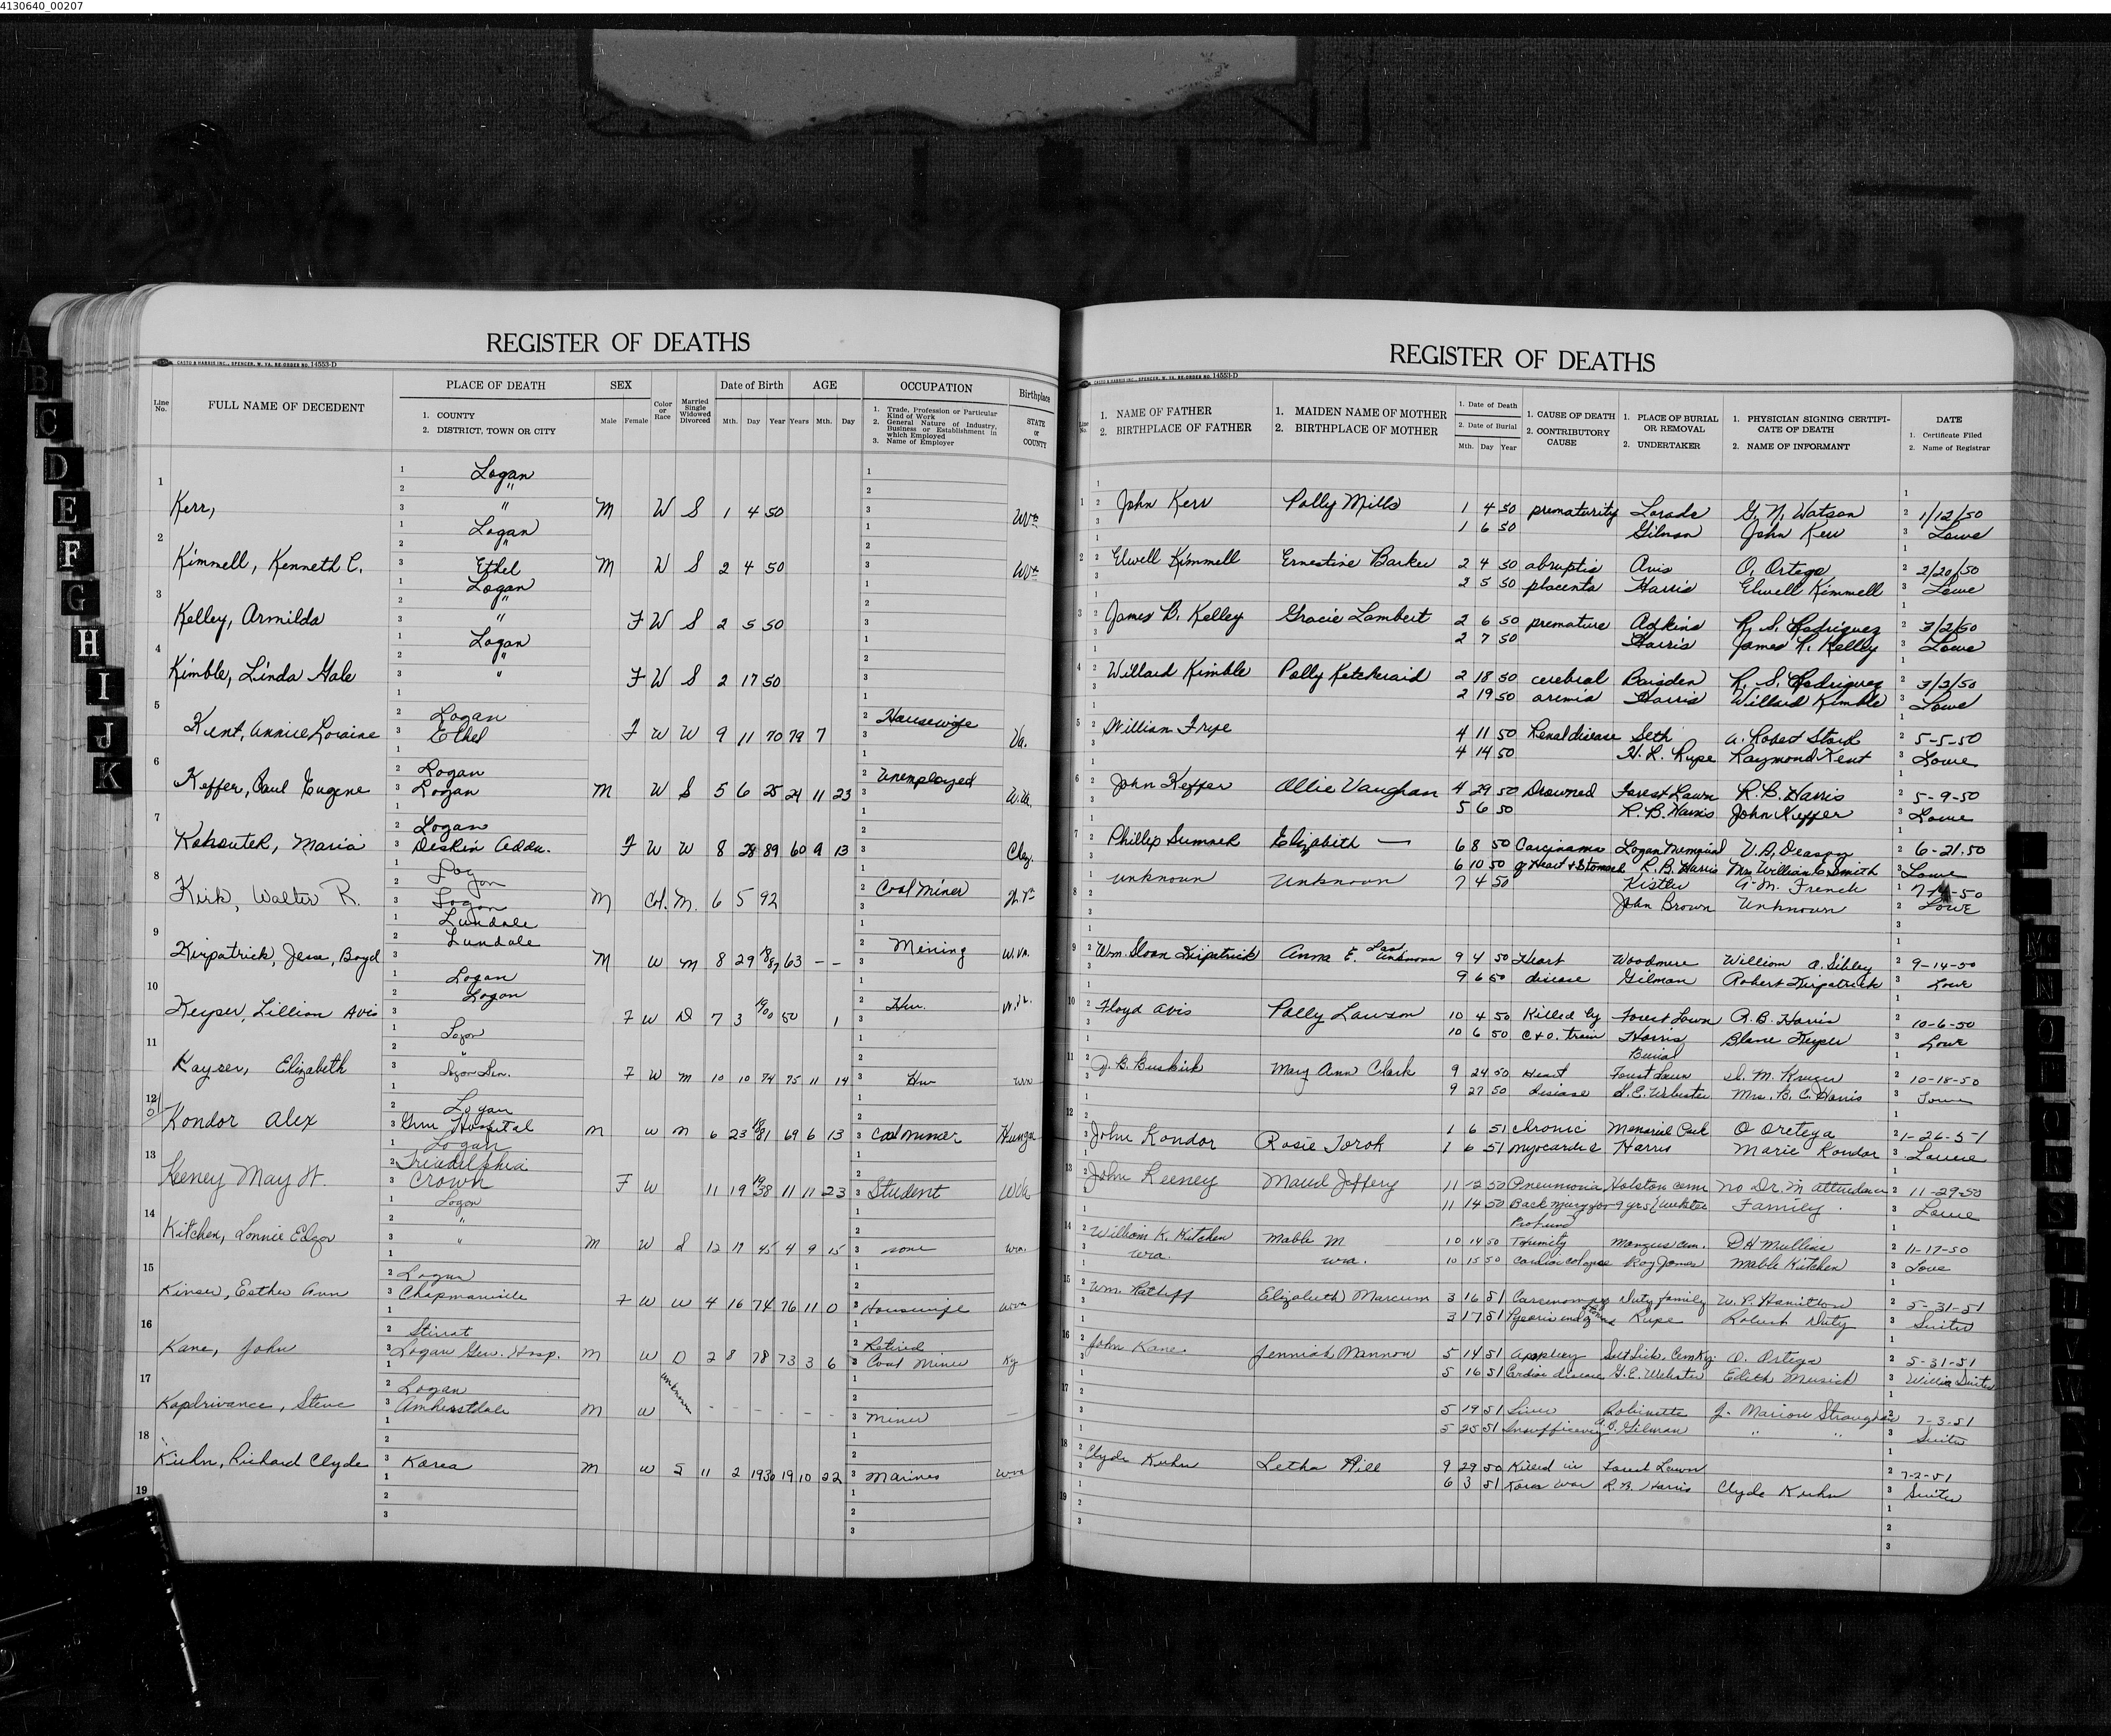 4130640_00207
REGISTER OF DEATHS
CASTO & HARRIS INC., SPENCER, W. VA. RE-ORDER NO. 14553-D
Line No. FULL NAME OF DECEDENT PLACE OF DEATH 1. COUNTY 2. DISTRICT, TOWN OR CITY SEX Male Female Color or Race Married Single Widowed Divorced Date of Birth Mth. Day Year AGE Years Mth. Day OCCUPATION 1. Trade, Profession or Particular Kind of Work 2. General Nature of Industry, Business or Establishment in which Employed 3. Name of Employer Birthplace STATE or COUNTY
1 Logan
2 "
1 Kerr, 3 " M W S 1 4 50 W Va
Logan
2 "
2 Kimmell, Kenneth C. 3 Ethel M W S 2 4 50 W Va
Logan
2 "
3 Kelley, Armilda 3 " F W S 2 5 50
Logan
2 "
4 Kimble, Linda Gale 3 " F W S 2 17 50
2 Logan 2 Housewife
5 Kent, Annie Loraine 3 Ethel F W W 9 11 70 79 7 Va.
2 Logan 2 Unemployed
6 Keffer, Paul Eugene 3 Logan M W S 5 6 25 24 11 23 W.Va.
2 Logan
7 Maria 3 Deskin Addn. F W W 8 28 89 60 9 13
Logan
8 Kirk, Walter R. Logan M Col. M. 6 5 92 2 Coal Miner
Lundale
Lundale 2 Mining
9 Kirpatrick, Jess, Boyd M W M 8 29 1887 63 - - W. Va.
Logan
Logan 2 Hw.
10 Keyser, Lillian Avis F W D 7 3 1900 50 1
Logan
"
11 Kayser, Elizabeth Logan Gen. F W M 10 10 74 75 11 14 3 Hw Wva
2 Logan
12 Kondor Alex 3 Gen Hospital M W M 6 23 1881 69 6 13 3 Coal miner Hunga
1 Logan
2 Triadelphia
13 Keeney May H. 3 Crown F W 11 19 1938 11 11 23 3 Student W Va
1 Logan
2 "
14 Kitchen, Lonnie Edgar 3 " M W S 12 19 45 4 9 15 3 none Wva.
2 Logan
15 Kinser, Esther Ann 3 Chapmanville F W W 4 16 74 76 11 0 3 Housewife Wva
2 Stirrat 2 Retired
16 Kane, John 3 Logan Gen. Hosp. M W D 2 8 78 73 3 6 3 Coal Miner Ky
2 Logan
17 Kapdrivance, Steve 3 Amherstdale M W unknown - - - - - - 3 Miner -
18 Kuhn, Richard Clyde 3 Korea M W S 11 2 1930 19 10 22 3 Marines Wva
19
REGISTER OF DEATHS
CASTO & HARRIS INC., SPENCER, W. VA. RE-ORDER NO. 14553-D
Line No. 1. NAME OF FATHER 2. BIRTHPLACE OF FATHER 1. MAIDEN NAME OF MOTHER 2. BIRTHPLACE OF MOTHER 1. Date of Death 2. Date of Burial Mth. Day Year 1. CAUSE OF DEATH 2. CONTRIBUTORY CAUSE 1. PLACE OF BURIAL OR REMOVAL 2. UNDERTAKER 1. PHYSICIAN SIGNING CERTIFICATE OF DEATH 2. NAME OF INFORMANT DATE 1. Certificate Filed 2. Name of Registrar
1 John Kerr Polly Mills 1 4 50 prematurity Lorado G. N. Watson 1/12/50
1 6 50 Gilman John Kerr Lowe
2 Elwell Kimmell Ernestine Barker 2 4 50 abruptio Avis O. Ortego 2/20/50
2 5 50 placenta Harris Elwell Kimmell Lowe
3 James B. Kelley Gracie Lambert 2 6 50 premature Adkins R. S. Rodriguez 3/2/50
2 7 50 Harris James R. Kelley Lowe
4 Willard Kimble Polly 2 18 50 cerebral Baisden R. S. Rodriguez 3/2/50
2 19 50 Harris Willard Kimble Lowe
5 William Fripe 4 11 50 Renal disease Seth A. Robert Stark 5-5-50
4 14 50 H. L. Rupe Raymond Kent Lowe
6 John Keffer Ollie Vaughan 4 29 50 Drowned Forest Lawn R. B. Harris 5-9-50
5 6 50 R. B. Harris John Keffer Lowe
7 Phillip Sumner Elizabeth — 6 8 50 Carcinoma Logan Memorial V. B. Deason 6-21-50
6 10 50 of Heart & Stomach R. B. Harris Mrs William C. Smith Lowe
8 unknown Unknown 7 4 50 Kistler A. M. French -50
John Brown Unknown Lowe
9 Wm. Sloan Kirpatrick Anna E. Last unknown 9 4 50 Heart Woodmere William A. Sibley 9-14-50
9 6 50 disease Gilman Robert Kirpatrick Lowe
10 Floyd Avis Polly Lawson 10 4 50 Killed by Forest Lawn R. B. Harris 10-6-50
10 6 50 C+O. train Harris Blane Keyser Lowe
Burial
11 J. B. Buskirk Mary Ann Clark 9 24 50 Heart Forest Lawn M. Kruger 10-18-50
9 27 50 disease G. E. Webster Mrs. B. C. Harris Lowe
12 John Kondor Rosie Torok 1 6 51 chronic Memorial Park O Ortega 1-26-51
1 6 51 myocardio Harris Marie Kondor Lowe
13 John Keeney Maud Jeffery 11 12 50 Pneumonia Holston cem No Dr. in attendance 11-29-50
11 14 50 Back injury for 9 yrs Webster Family. Lowe
14 William K. Kitchen Mable M 10 14 50 Mangus cem. D H Mullins 11-17-50
Wva. Wva. 10 15 50 Cardiac colapse Roy Jones Mable Kitchen Lowe
15 Wm. Ratliff Elizabeth Marcum 3 16 51 Carcinoma Duty family W. P. Hamilton 5-31-51
3 17 51 Rupe Robert Duty Suiter
16 John Kane Jenniah Mannon 5 14 51 Apoplexy Salt Lick, Cem Ky. O. Ortega 5-31-51
5 16 51 Cardiac disease G. E. Webster Edith Musick Willia Suiter
17 5 19 51 Liver Robinette J. Marion Straughan 7-3-51
5 25 51 Insufficiency Gilman " " Suiter
18 Clyde Kuhn Letha Hill 9 29 50 Killed in Forest Lawn 7-2-51
6 3 51 Korea war R. B. Harris Clyde Kuhn Suiter
19
A
B
C
D
E
F
G
H
I
J
K